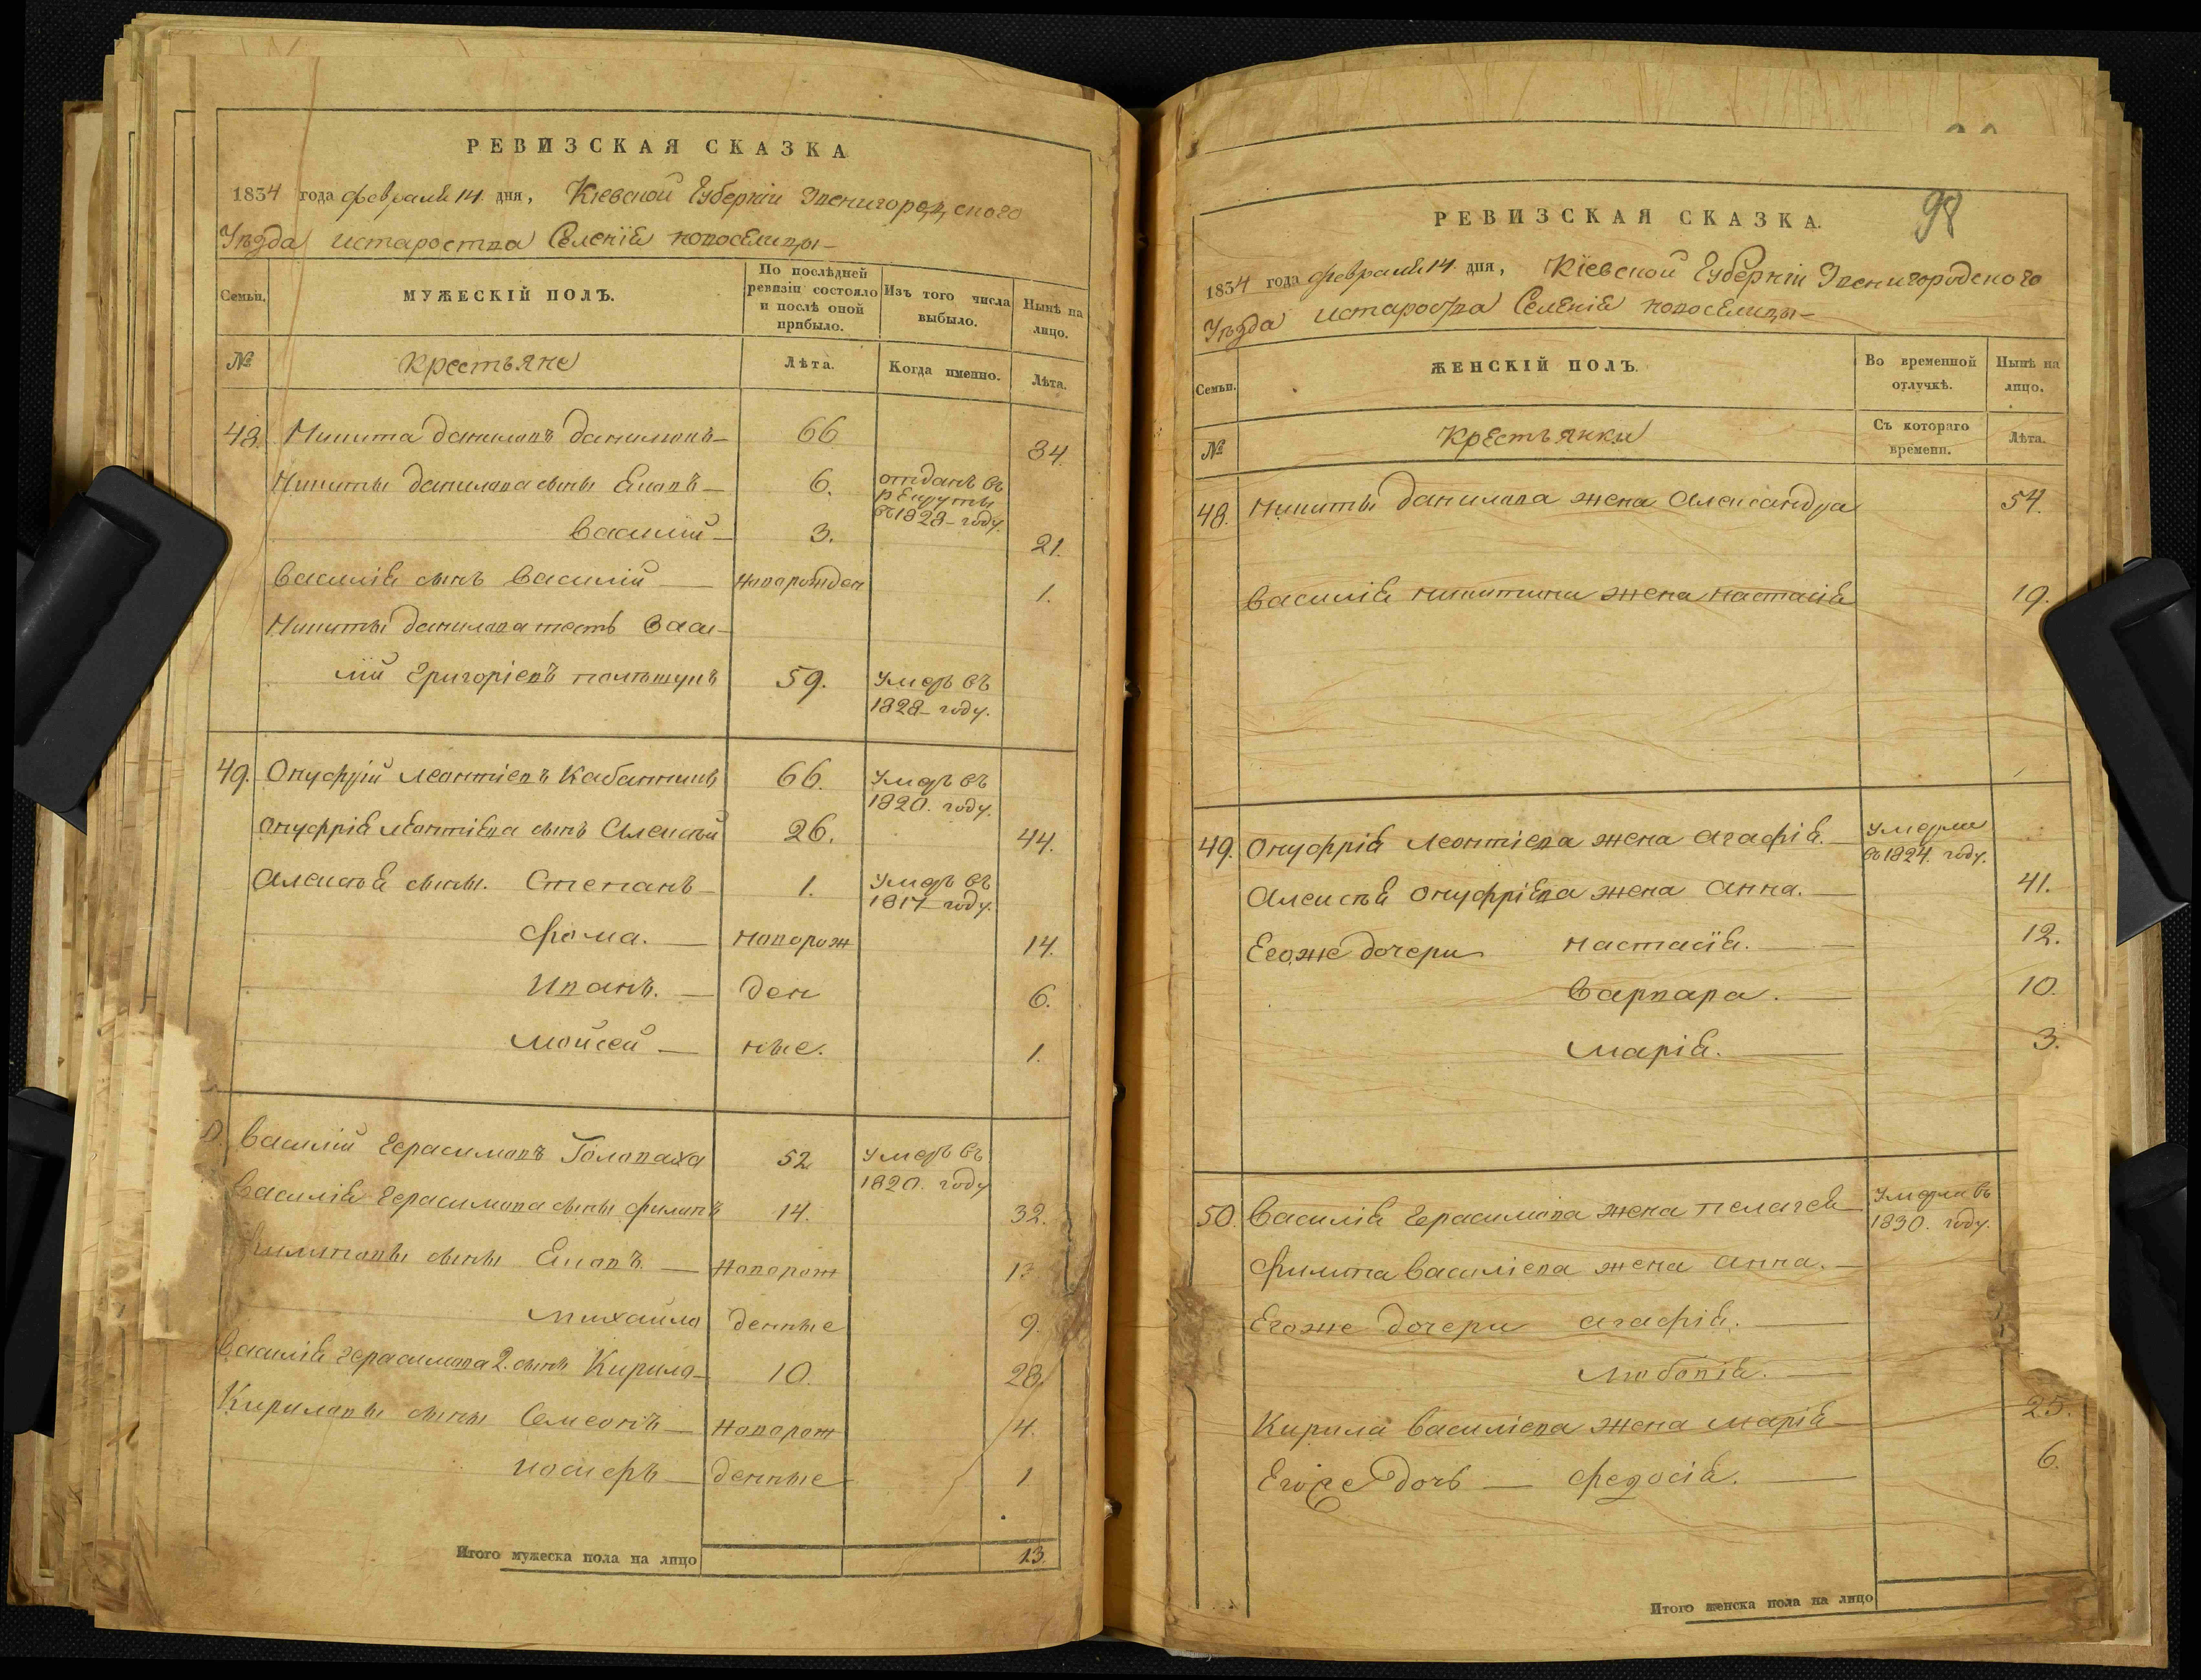 РЕВИЗСКАЯ СКАЗКА
1834 года февраля 14. дня, Кіевской Губерніи Звенигородского
Уѣзда истароства Селеніе новоселицы
Семьи.
МУЖЕСКІЙ ПОЛЪ.
По послѣдней ревизіи состояло и послѣ оной прибыло.
Изъ того числа выбыло.
Нынѣ на лицо.
№
Крестьяне
Лѣта.
Когда именно.
Лѣта.
48. Никита даниловъ 66 84.
Никиты данилова сыны Яковъ 6. отданъ въ рекруты въ 1828 году.
Василій 3. 21.
Василія сынъ Василій новорожден 1.
Никиты данилова тесть Васи-
лій Григоріевъ 59. Умеръ въ 1828 году.
49. Онуфрій леонтіевъ 66. Умеръ въ 1820. году.
Онуфрія леонтіева сынъ Алексѣй 26. 44.
Алексѣя сыны. Степанъ 1. Умеръ въ 1817 году.
Фома. новорож 14.
Иванъ. ден 6.
Мойсей ные. 1.
Василій Герасимовъ Головаха 52 умеръ въ 1820. году
Василія Герасимова сыны филипъ 14. 32.
сыны Яковъ. новорож
михайло денные 9.
Василія герасимова 2. сынъ Кирило 10. 28.
Кириловы сыны Семеонъ новорож 4.
иосифъ денные 1
Итого мужеска пола на лицо 13.
98
РЕВИЗСКАЯ СКАЗКА.
1834 года февраля 14. дня, Кіевской Губерніи Звенигородского
Уѣзда истароства Селенія новоселицы
Семьи.
ЖЕНСКІЙ ПОЛЪ.
Во временной отлучкѣ.
Нынѣ на лицо.
№
Крестьянки
Съ котораго времени.
Лѣта.
48. Никиты данилова жена Александра 54.
Василія никитина жена настасія 19.
49. Онуфрія леонтіева жена агафія. умерла въ 1824. году.
Алексѣя онуфріева жена анна. 41.
Егоже дочери настасія. 12.
Варвара. 10.
марія. 3.
50. Василія Герасимова жена пелагея Умерла въ 1830. году.
Филипа Василіева жена анна.
Егоже дочери агафія.
любовія.
Кирила Василіева жена марія 25.
Егоже дочь федосія. 6.
Итого женска пола на лицо